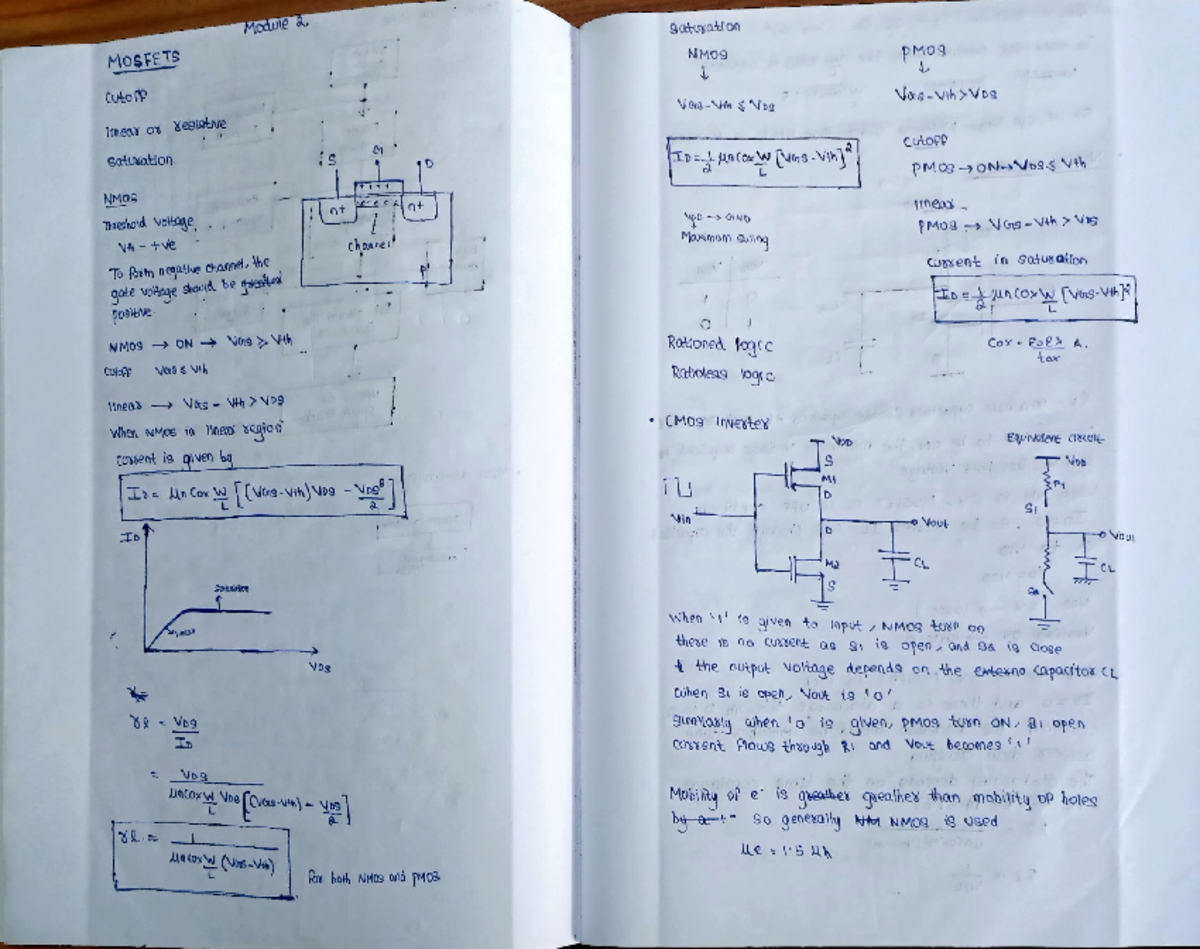 Module 2
MOSFETS
Cutoff
linear or resistive
Saturation
NMOS
Threshold Voltage
Vth - +ve
To form negative channel, the
gate voltage should be
positive
S G D
n+ n+
channel
P
NMOS → ON → VGS ≥ Vth
Cutoff VGS ≤ Vth
linear → VGS - Vth > VDS
When NMOS in linear region
current is given by
ID = μn Cox W/L [(VGS-Vth) VDS - VDS²/2]
ID
Saturation
linear
VDS
= VDS/ID
= VDS / μn Cox W/L VDS [(VGS-Vth) - VDS/2]
= 1 / μn Cox W/L (VGS-Vth)
For both NMOS and PMOS
Saturation
NMOS
↓
VGS-Vth ≤ VDS
ID = 1/2 μn Cox W/L [VGS-Vth]²
→ GND
Maximum swing
0 1
Rationed logic
Ratioless logic
PMOS
↓
VGS-Vth > VDS
Cutoff
PMOS → ON → VDS ≤ Vth
linear
PMOS → VGS-Vth > VDS
Current in saturation
ID = 1/2 μn Cox W/L [VGS-Vth]²
A.
tox
• CMOS Inverter
VDD
S
M1
D
Vin
Vout
D
M2
S
CL
Equivalent circuit
VDD
R1
S1
Vout
CL
When '1' is given to input, NMOS turn on
there is no current as S1 is open, and S2 is close
& the output voltage depends on the externo capacitor CL
When S1 is open, Vout is '0'
Similarly when '0' is given, PMOS turn ON, S1 open
Current flows through R1 and Vout becomes '1'
Mobility of e⁻ is greather greather than mobility of holes
so generally NMOS is used
μe = 1.5 μh